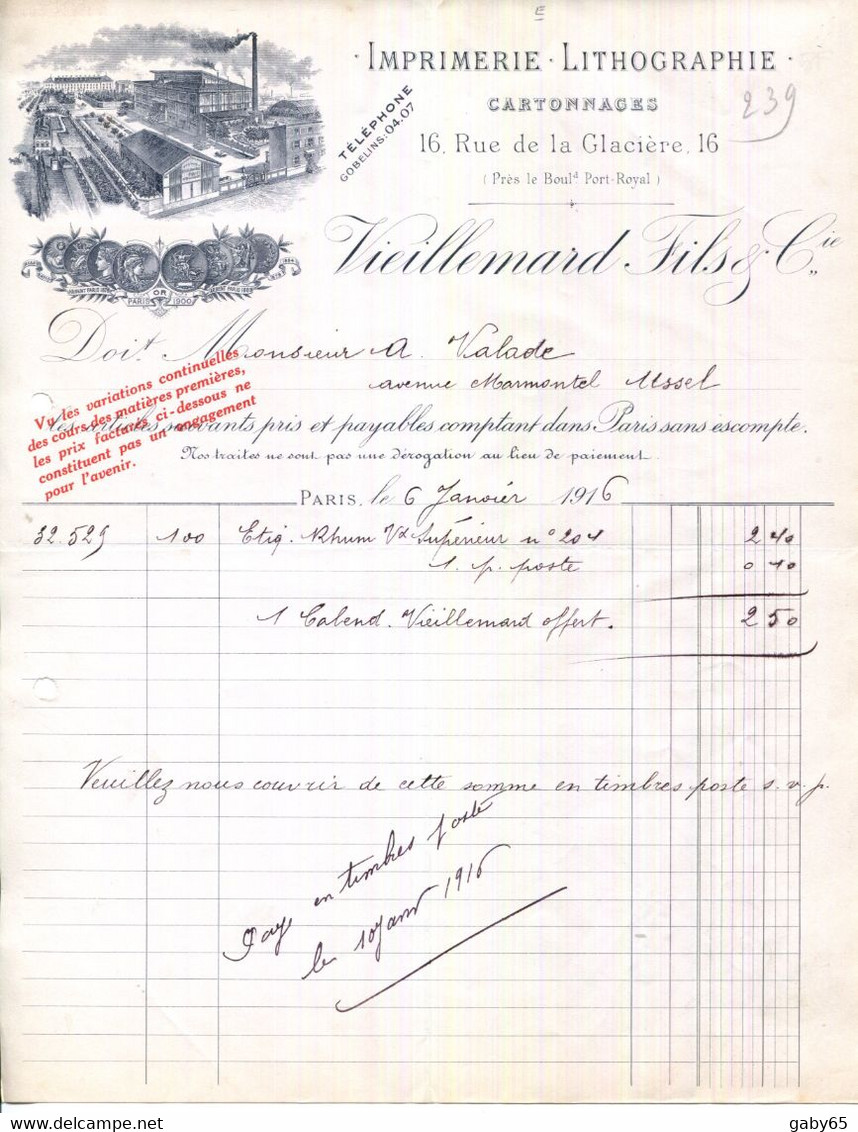 E
IMPRIMERIE · LITHOGRAPHIE ·
CARTONNAGES
239
16, Rue de la Glacière, 16
(Près le Boulᵈ Port-Royal)
TÉLÉPHONE
GOBELINS: 04.07
Vieillemard Fils & Cie
OR
PARIS 1900
Doit Monsieur A. Valade
avenue Marmontel Ussel
Vu les variations continuelles
des cours des matières premières,
les prix facturés ci-dessous ne
constituent pas un engagement
pour l'avenir.
les articles suivants pris et payables comptant dans Paris sans escompte.
Nos traites ne sont pas une dérogation au lieu de paiement.
PARIS, le 6 Janvier 1916
32.529 100 Etiq. Rhum Vx Supérieur n° 204 2 40
1. p. poste 0 10
1 Calend. Vieillemard offert. 2 50
Veuillez nous couvrir de cette somme en timbres poste s. v. p.
Payé en timbres poste
le 10 janv 1916
gaby65